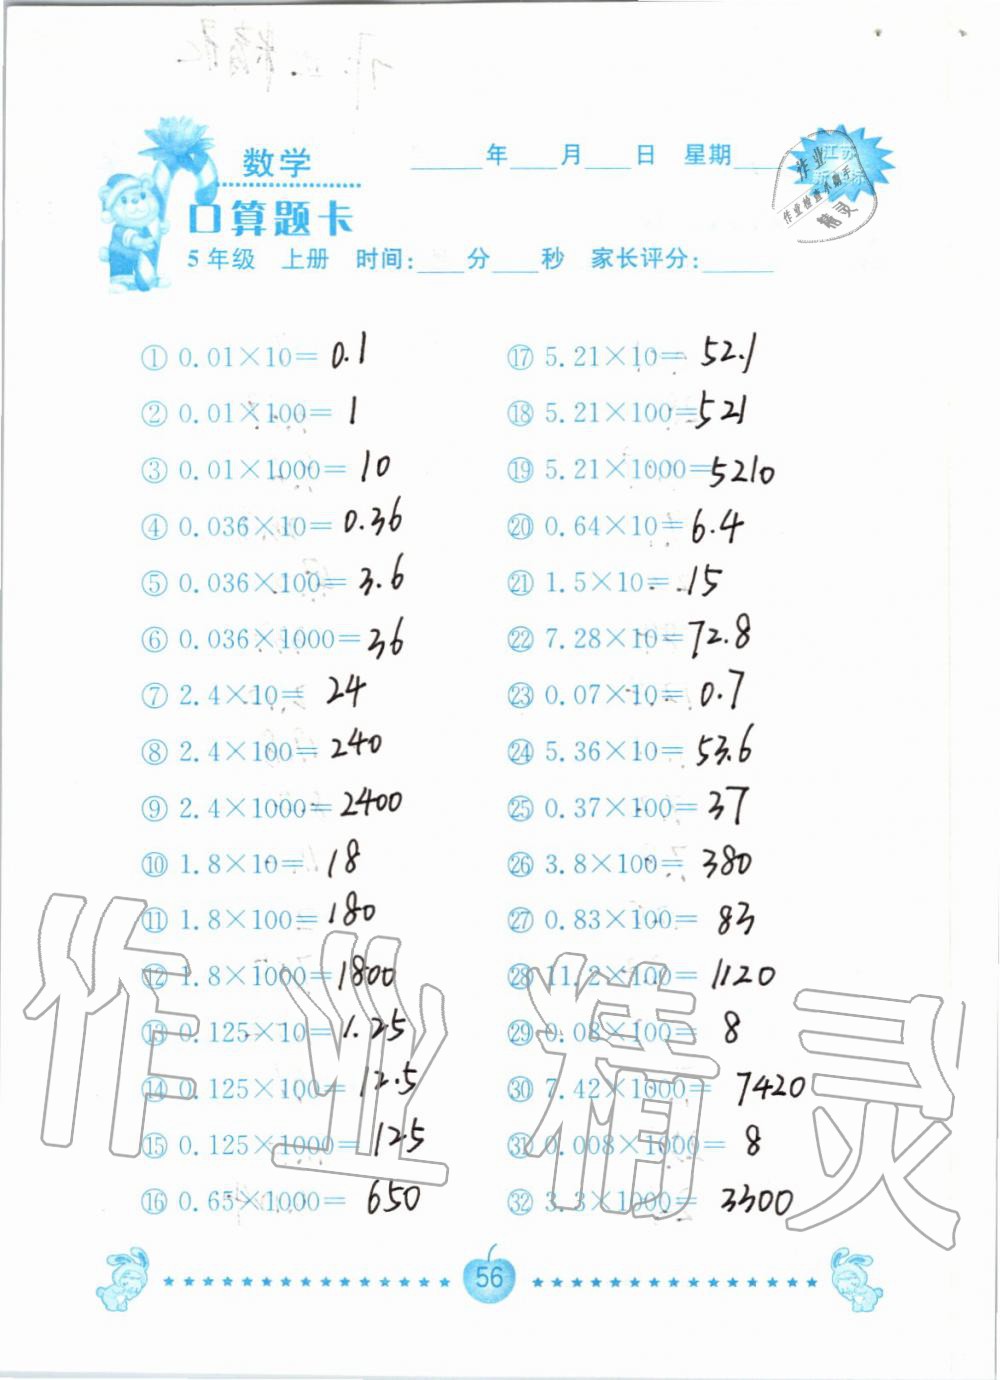 数学
____年____月____日 星期____
江苏
口算题卡
作业
作业检查小助手
精灵
5年级 上册 时间:____分____秒 家长评分:______
① 0.01×10= 0.1
② 0.01×100= 1
③ 0.01×1000= 10
④ 0.036×10= 0.36
⑤ 0.036×100= 3.6
⑥ 0.036×1000= 36
⑦ 2.4×10= 24
⑧ 2.4×100= 240
⑨ 2.4×1000= 2400
⑩ 1.8×10= 18
⑪ 1.8×100= 180
⑫ 1.8×1000= 1800
⑬ 0.125×10= 1.25
⑭ 0.125×100= 12.5
⑮ 0.125×1000= 12.5
⑯ 0.65×1000= 650
⑰ 5.21×10= 52.1
⑱ 5.21×100= 521
⑲ 5.21×1000= 5210
⑳ 0.64×10= 6.4
㉑ 1.5×10= 15
㉒ 7.28×10= 72.8
㉓ 0.07×10= 0.7
㉔ 5.36×10= 53.6
㉕ 0.37×100= 37
㉖ 3.8×100= 380
㉗ 0.83×100= 83
㉘ 11.2×100= 1120
㉙ 0.08×100= 8
㉚ 7.42×1000= 7420
㉛ 0.008×1000= 8
㉜ 3.3×1000= 3300
作业精灵
56